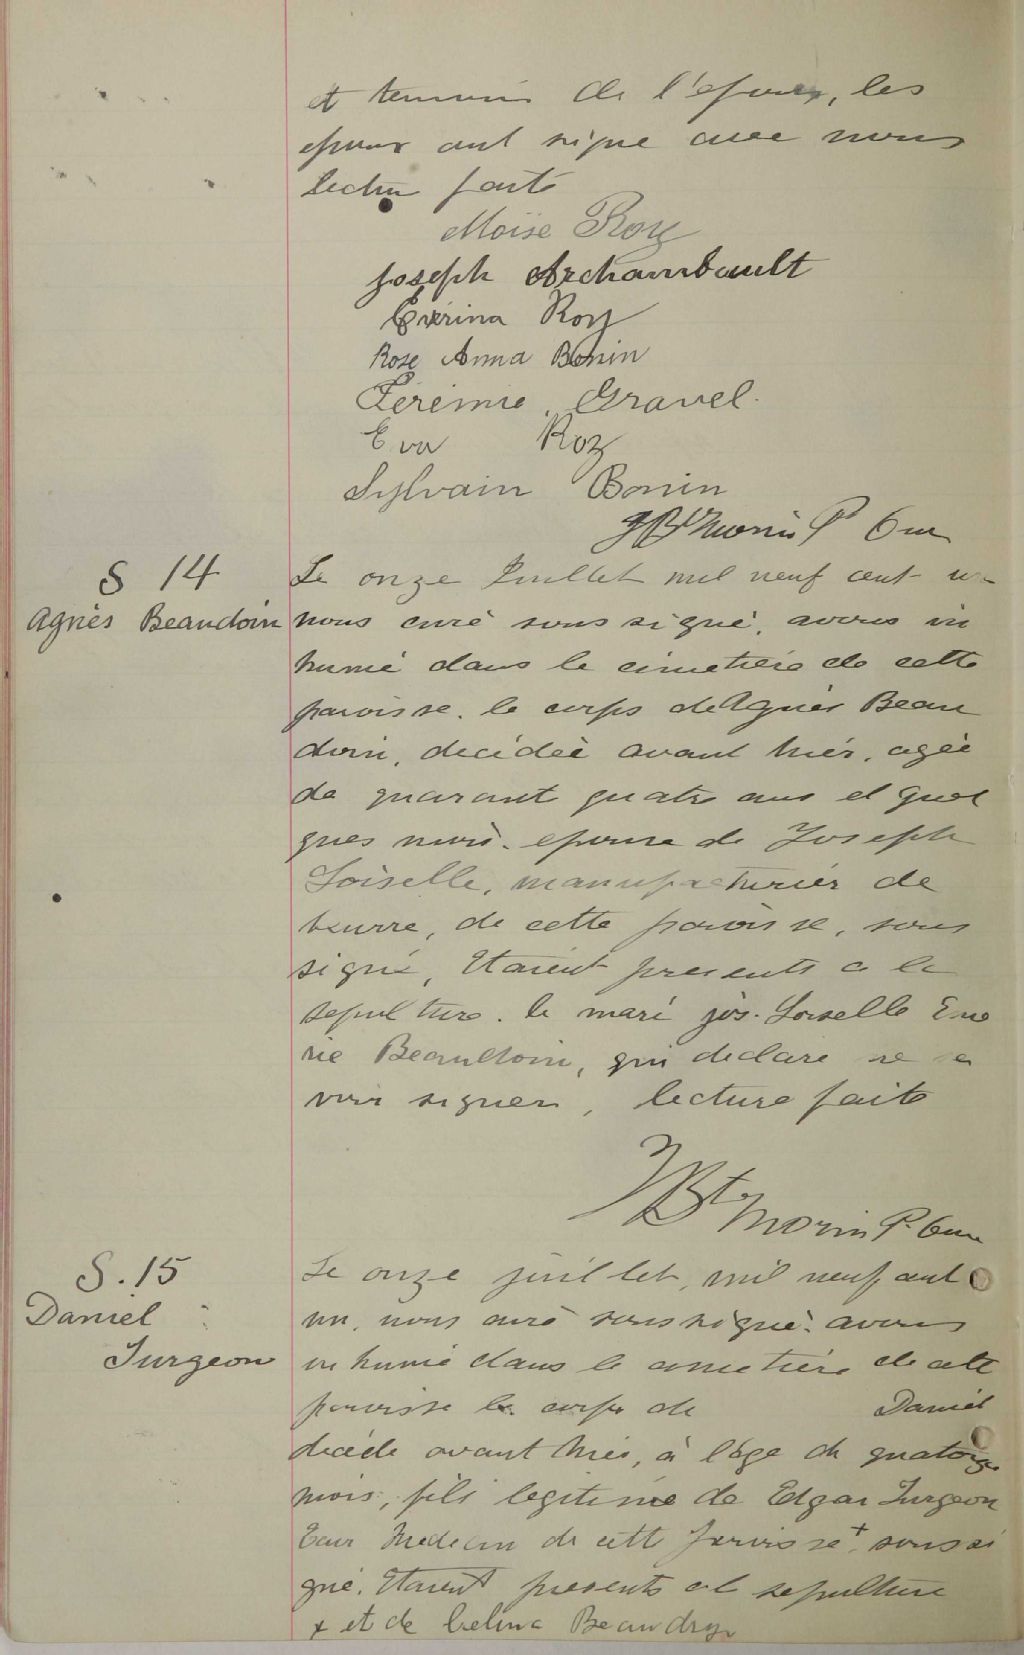 et temoin de l'epoux, les
epoux ont signe avec nous
lecture faite
Moïse Roy
Joseph Archambault
Exérina Roy
Rose Anna Bonin
Jérémie Gravel.
Eva Roy
Sylvain Bonin
JBt Morin P Cure
S 14
Agnès Beaudoin
Le onze Juillet mil neuf cent un
nous curé sous signé, avons in
humé dans le cimetière de cette
paroisse. le corps de Agnès Beau
doin, décédée avant hier, agée
de quarant quatre ans et quel
ques mois. epouse de Joseph
Loiselle, manufacturier de
beurre, de cette paroisse, sous
signé, Etaient presents a la
sepulture. le mari jos. Loiselle
rie Beaudoin, qui declare ne sa
voir signer, lecture faite
JBt Morin P. Cure
S. 15
Daniel
Turgeon
Le onze juillet, mil neuf cent
un, nous curé soussigné. avons
inhumé dans le cimetière de cette
paroisse le corps de Daniel
décédé avant hier, à l'âge de quatorze
mois, fils legitime de Edgar Turgeon
Ecur Medecin de cette paroisse + soussi
gné. Etaient presents a la sepulture
+ et de Celina Beaudry